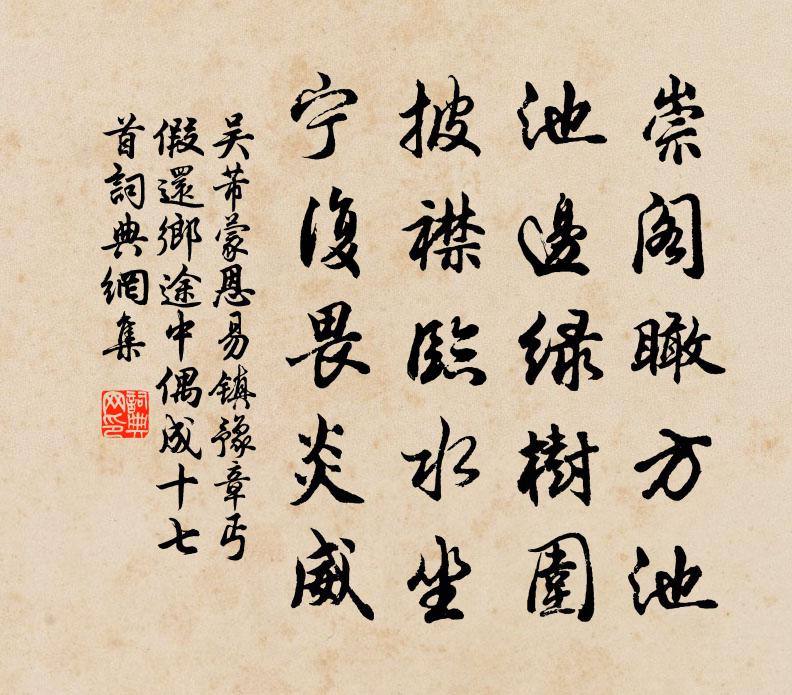 崇阁瞰方池
池邊绿樹圍
披襟臨水坐
宁復畏炎威
吴芾蒙恩易镇豫章丐
假還鄉途中偶成十七
首詞典網集
詞典
网印